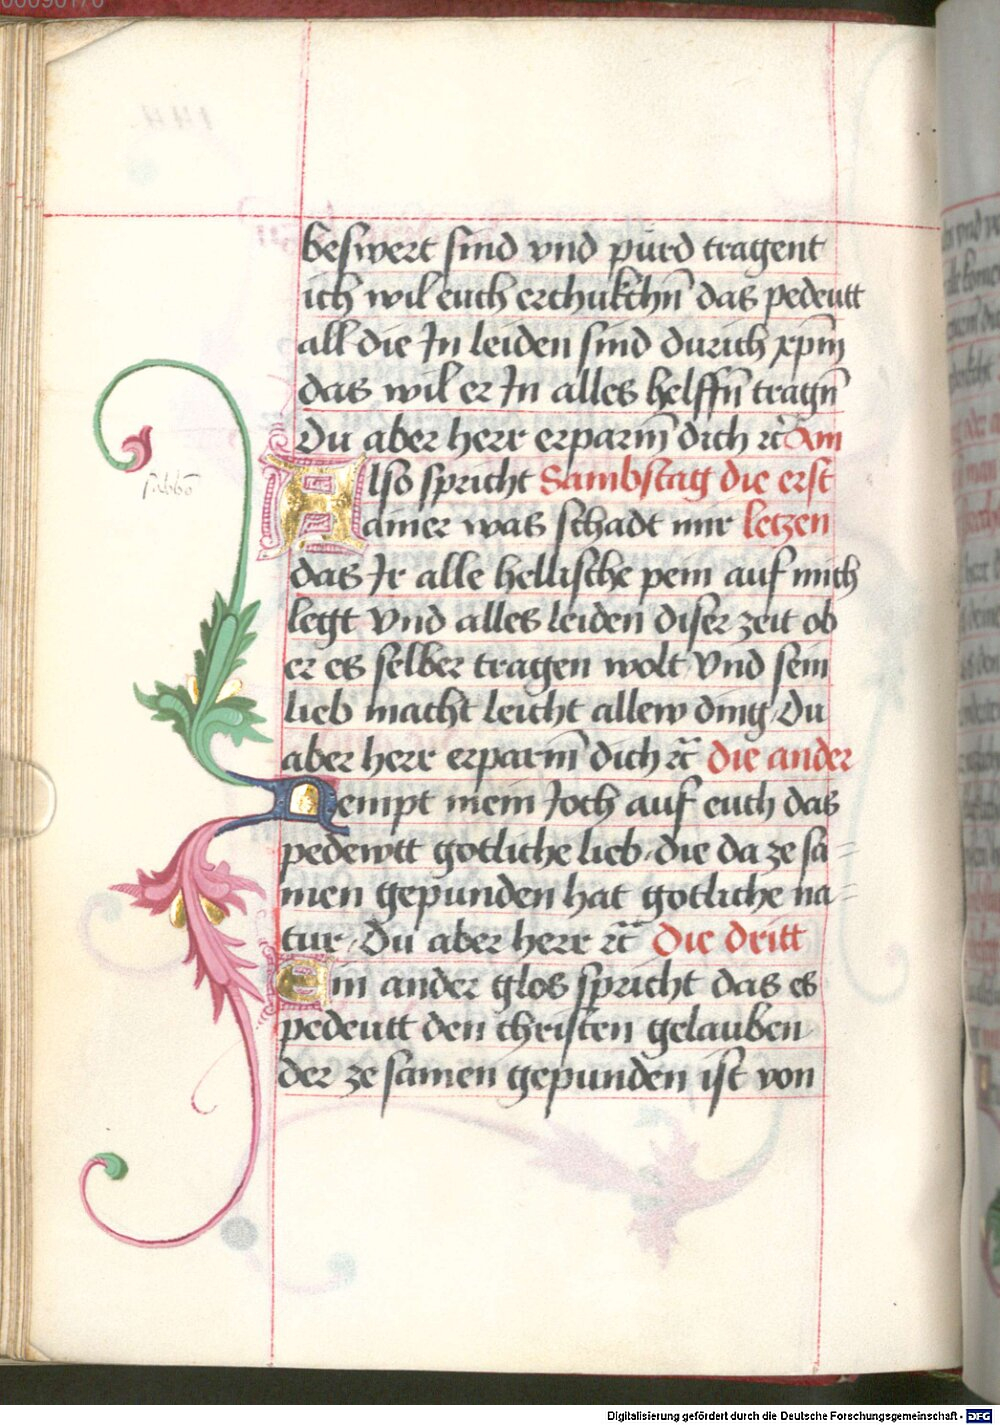 beswert sind vnd pürd tragent
ich wil euch erchukchn̄ das pedeutt
all die Jn leiden sind durich xp̄m
das wil er Jn alles helffn̄ tragn̄
Du aber herr erparm̄ dich ꝛc̄ Am
Also spricht Sambstag die erst
ainer was schadt mir letzen
das Jr alle hellische pein auf mich
legt Vnd alles leiden diser zeit ob
er es selber tragen wolt Vnd sein
lieb macht leicht allew ding / Du
aber herr erparm̄ dich ꝛc̄ die ander
Nempt mein Joch auf euch das
pedewtt gotliche lieb / die da ze sa=
men gepunden hat gotliche na=
tur / Du aber herr ꝛc̄ Die dritt
Ein ander glos spricht das es
pedeutt den christen gelauben
der ze samen gepunden ist von
Digitalisierung gefördert durch die Deutsche Forschungsgemeinschaft - DFG